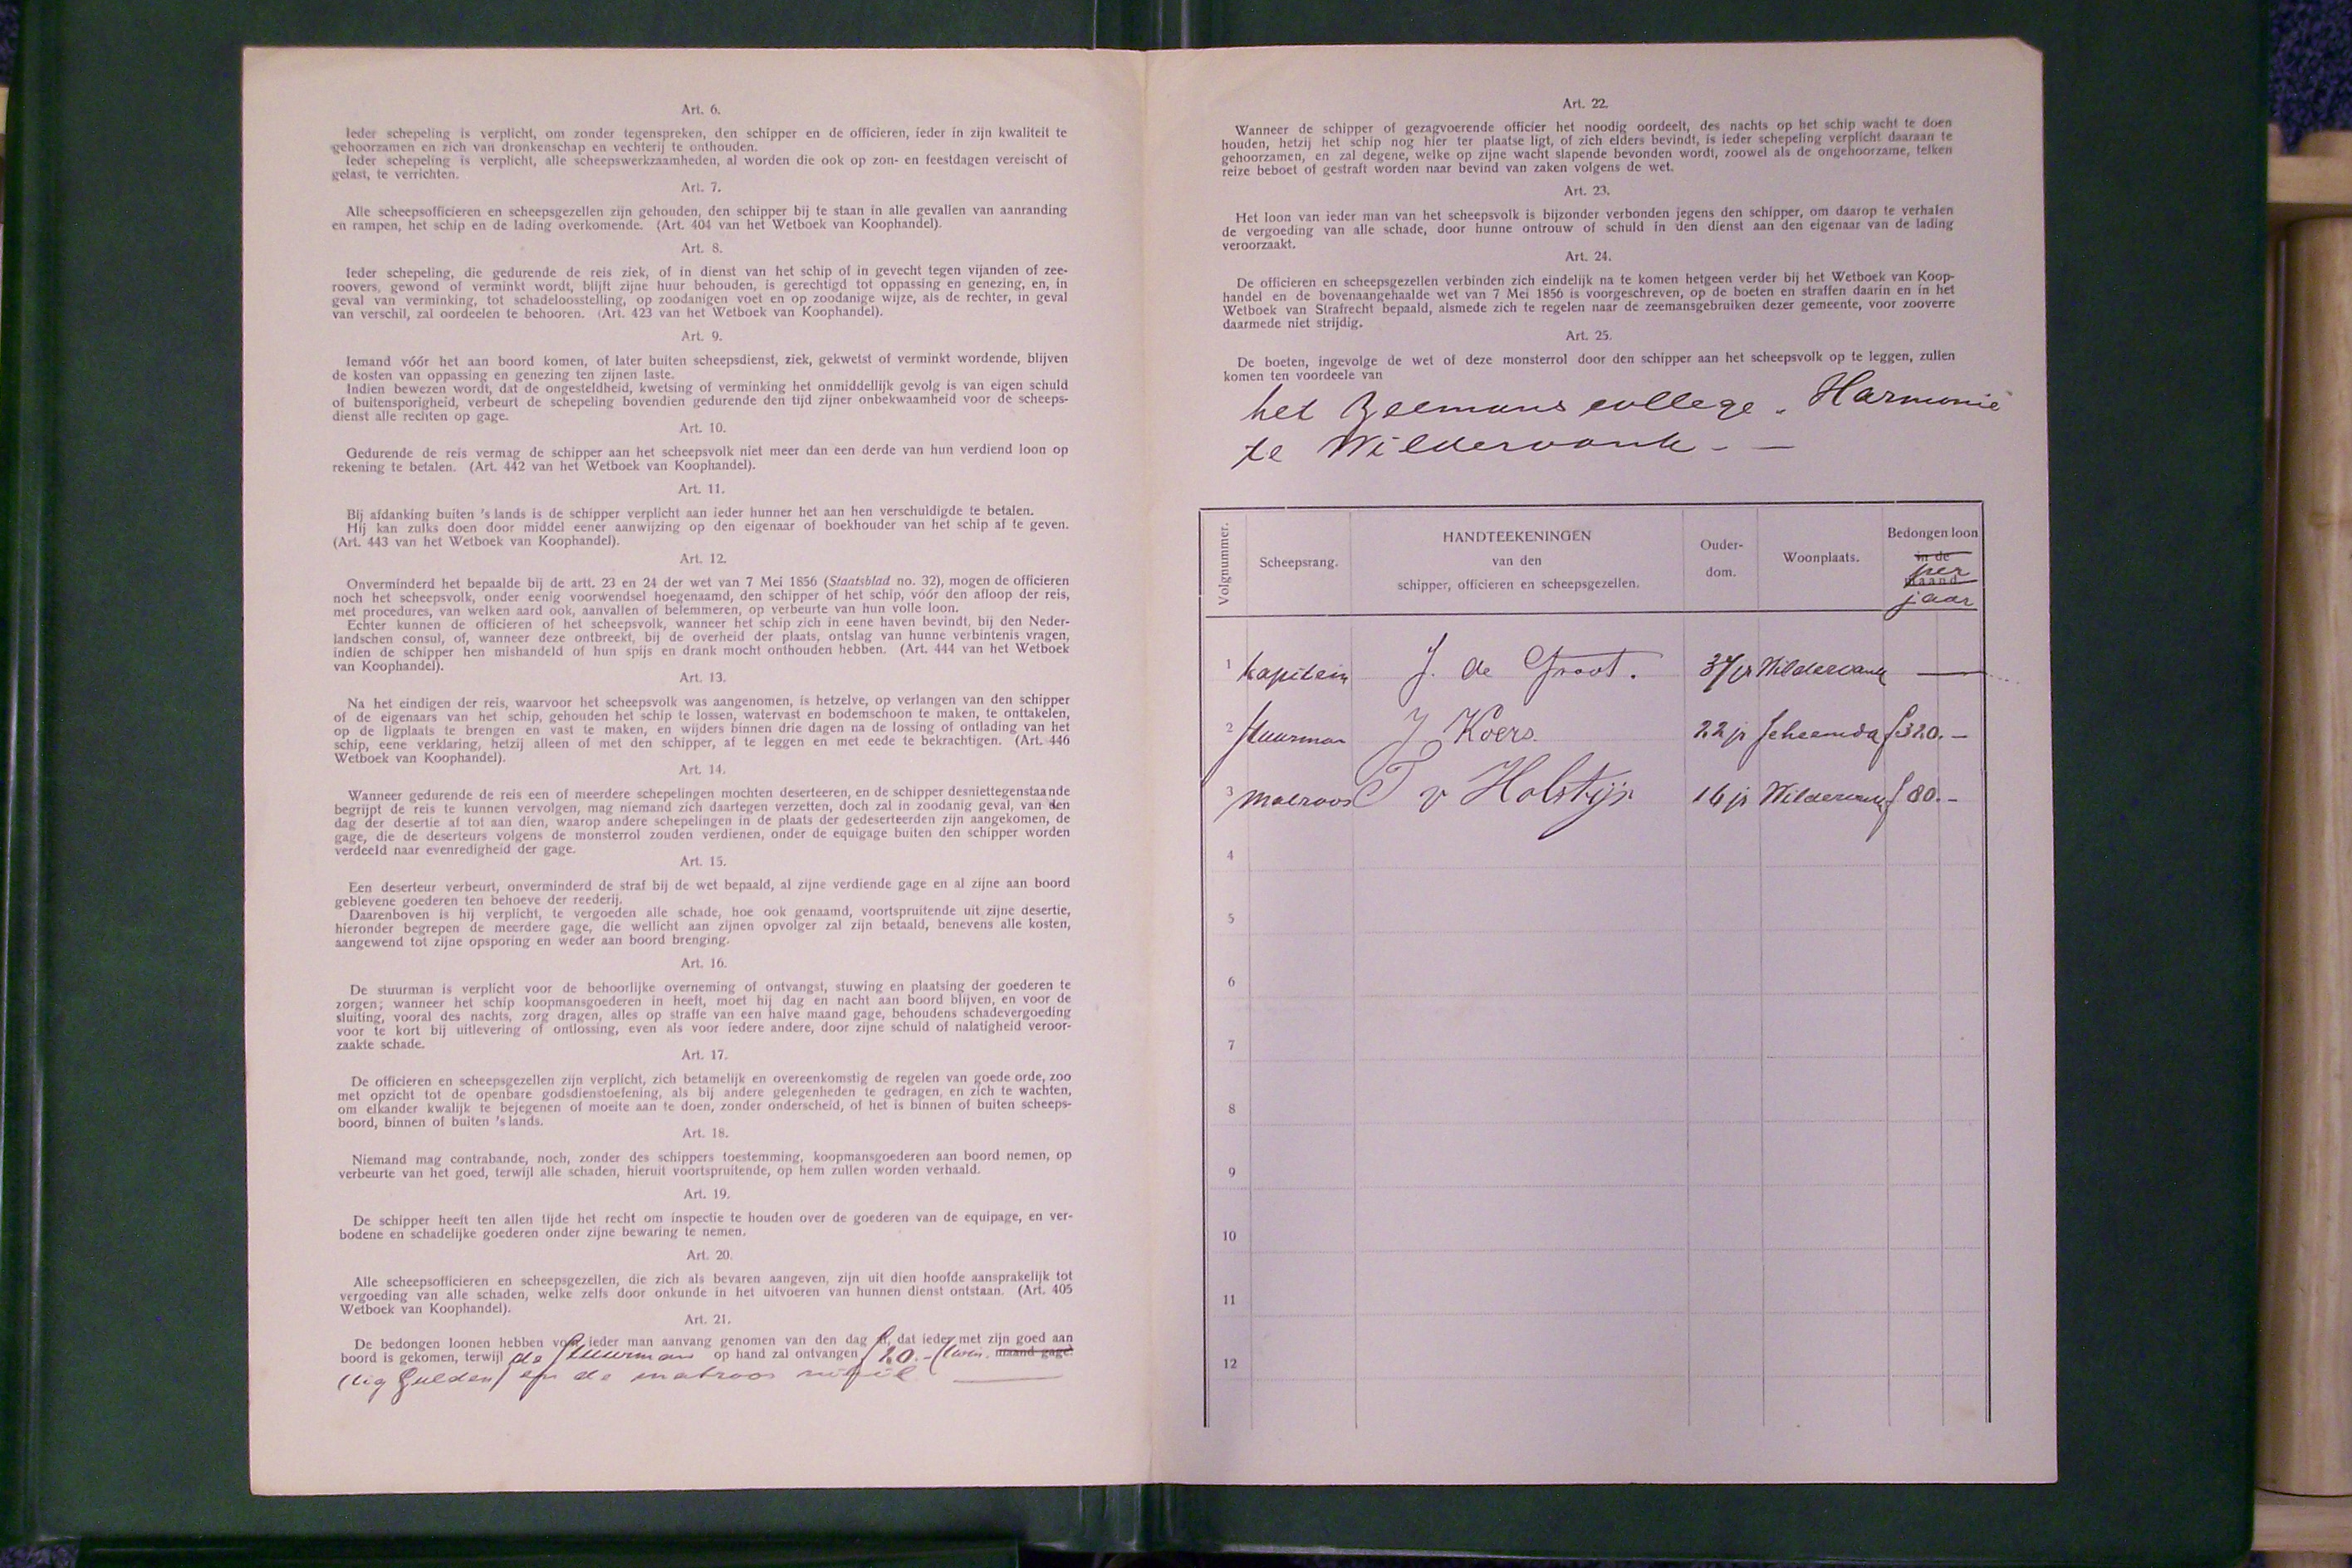 Art. 6.
Ieder schepeling is verplicht, om zonder tegenspreken, den schipper en de officieren, ieder in zijn kwaliteit te
gehoorzamen en zich van dronkenschap en vechterij te onthouden.
Ieder schepeling is verplicht, alle scheepswerkzaamheden, al worden die ook op zon- en feestdagen vereischt of
gelast, te verrichten.
Art. 7.
Alle scheepsofficieren en scheepsgezellen zijn gehouden, den schipper bij te staan in alle gevallen van aanranding
en rampen, het schip en de lading overkomende. (Art. 404 van het Wetboek van Koophandel).
Art. 8.
Ieder schepeling, die gedurende de reis ziek, of in dienst van het schip of in gevecht tegen vijanden of zee-
roovers, gewond of verminkt wordt, blijft zijne huur behouden, is gerechtigd tot oppassing en genezing, en, in
geval van verminking, tot schadeloosstelling, op zoodanigen voet en op zoodanige wijze, als de rechter, in geval
van verschil, zal oordeelen te behooren. (Art. 423 van het Wetboek van Koophandel).
Art. 9.
Iemand vóór het aan boord komen, of later buiten scheepsdienst, ziek, gekwetst of verminkt wordende, blijven
de kosten van oppassing en genezing ten zijnen laste.
Indien bewezen wordt, dat de ongesteldheid, kwetsing of verminking het onmiddellijk gevolg is van eigen schuld
of buitensporigheid, verbeurt de schepeling bovendien gedurende den tijd zijner onbekwaamheid voor de scheeps-
dienst alle rechten op gage.
Art. 10.
Gedurende de reis vermag de schipper aan het scheepsvolk niet meer dan een derde van hun verdiend loon op
rekening te betalen. (Art. 442 van het Wetboek van Koophandel).
Art. 11.
Bij afdanking buiten 's lands is de schipper verplicht aan ieder hunner het aan hen verschuldigde te betalen.
Hij kan zulks doen door middel eener aanwijzing op den eigenaar of boekhouder van het schip af te geven.
(Art. 443 van het Wetboek van Koophandel).
Art. 12.
Onverminderd het bepaalde bij de artt. 23 en 24 der wet van 7 Mei 1856 (Staatsblad no. 32), mogen de officieren
noch het scheepsvolk, onder eenig voorwendsel hoegenaamd, den schipper of het schip, vóór den afloop der reis,
met procedures, van welken aard ook, aanvallen of belemmeren, op verbeurte van hun volle loon.
Echter kunnen de officieren of het scheepsvolk, wanneer het schip zich in eene haven bevindt, bij den Neder-
landschen consul, of, wanneer deze ontbreekt, bij de overheid der plaats, ontslag van hunne verbintenis vragen,
indien de schipper hen mishandeld of hun spijs en drank mocht onthouden hebben. (Art. 444 van het Wetboek
van Koophandel).
Art. 13.
Na het eindigen der reis, waarvoor het scheepsvolk was aangenomen, is hetzelve, op verlangen van den schipper
of de eigenaars van het schip, gehouden het schip te lossen, watervast en bodemschoon te maken, te onttakelen,
op de ligplaats te brengen en vast te maken, en wijders binnen drie dagen na de lossing of ontlading van het
schip, eene verklaring, hetzij alleen of met den schipper, af te leggen en met eede te bekrachtigen. (Art. 446
Wetboek van Koophandel).
Art. 14.
Wanneer gedurende de reis een of meerdere schepelingen mochten deserteeren, en de schipper desniettegenstaande
begrijpt de reis te kunnen vervolgen, mag niemand zich daartegen verzetten, doch zal in zoodanig geval, van den
dag der desertie af tot aan dien, waarop andere schepelingen in de plaats der gedeserteerden zijn aangekomen, de
gage, die de deserteurs volgens de monsterrol zouden verdienen, onder de equigage buiten den schipper worden
verdeeld naar evenredigheid der gage.
Art. 15.
Een deserteur verbeurt, onverminderd de straf bij de wet bepaald, al zijne verdiende gage en al zijne aan boord
geblevene goederen ten behoeve der reederij.
Daarenboven is hij verplicht, te vergoeden alle schade, hoe ook genaamd, voortspruitende uit zijne desertie,
hieronder begrepen de meerdere gage, die wellicht aan zijnen opvolger zal zijn betaald, benevens alle kosten,
aangewend tot zijne opsporing en weder aan boord brenging.
Art. 16.
De stuurman is verplicht voor de behoorlijke overneming of ontvangst, stuwing en plaatsing der goederen te
zorgen; wanneer het schip koopmansgoederen in heeft, moet hij dag en nacht aan boord blijven, en voor de
sluiting, vooral des nachts, zorg dragen, alles op straffe van een halve maand gage, behoudens schadevergoeding
voor te kort bij uitlevering of ontlossing, even als voor iedere andere, door zijne schuld of nalatigheid veroor-
zaakte schade.
Art. 17.
De officieren en scheepsgezellen zijn verplicht, zich betamelijk en overeenkomstig de regelen van goede orde, zoo
met opzicht tot de openbare godsdienstoefening, als bij andere gelegenheden te gedragen, en zich te wachten,
om elkander kwalijk te bejegenen of moeite aan te doen, zonder onderscheid, of het is binnen of buiten scheeps-
boord, binnen of buiten 's lands.
Art. 18.
Niemand mag contrabande, noch, zonder des schippers toestemming, koopmansgoederen aan boord nemen, op
verbeurte van het goed, terwijl alle schaden, hieruit voortspruitende, op hem zullen worden verhaald.
Art. 19.
De schipper heeft ten allen tijde het recht om inspectie te houden over de goederen van de equipage, en ver-
bodene en schadelijke goederen onder zijne bewaring te nemen.
Art. 20.
Alle scheepsofficieren en scheepsgezellen, die zich als bevaren aangeven, zijn uit dien hoofde aansprakelijk tot
vergoeding van alle schaden, welke zelfs door onkunde in het uitvoeren van hunnen dienst ontstaan. (Art. 405
Wetboek van Koophandel).
Art. 21.
De bedongen loonen hebben voor ieder man aanvang genomen van den dag af, dat ieder met zijn goed aan
boord is gekomen, terwijl de stuurman op hand zal ontvangen f 20.- (twin. maand gage.
(tig Gulden) en de matroos nihil
Art. 22.
Wanneer de schipper of gezagvoerende officier het noodig oordeelt, des nachts op het schip wacht te doen
houden, hetzij het schip nog hier ter plaatse ligt, of zich elders bevindt, is ieder schepeling verplicht daaraan te
gehoorzamen, en zal degene, welke op zijne wacht slapende bevonden wordt, zoowel als de ongehoorzame, telken
reize beboet of gestraft worden naar bevind van zaken volgens de wet.
Art. 23.
Het loon van ieder man van het scheepsvolk is bijzonder verbonden jegens den schipper, om daarop te verhalen
de vergoeding van alle schade, door hunne ontrouw of schuld in den dienst aan den eigenaar van de lading
veroorzaakt.
Art. 24.
De officieren en scheepsgezellen verbinden zich eindelijk na te komen hetgeen verder bij het Wetboek van Koop-
handel en de bovenaangehaalde wet van 7 Mei 1856 is voorgeschreven, op de boeten en straffen daarin en in het
Wetboek van Strafrecht bepaald, alsmede zich te regelen naar de zeemansgebruiken dezer gemeente, voor zooverre
daarmede niet strijdig.
Art. 25.
De boeten, ingevolge de wet of deze monsterrol door den schipper aan het scheepsvolk op te leggen, zullen
komen ten voordeele van
het Zeemans college „Harmonie
te Wildervank - —
Volgnummer. Scheepsrang. HANDTEEKENINGEN van den schipper, officieren en scheepsgezellen. Ouder-dom. Woonplaats. Bedongen loon in de maand per jaar
1 kapitein J. de Groot. 37 jr Wildervank —
2 stuurman J Koers. 22 jr Scheemda f 320.-
3 matroos T v Holstijn 16 jr Wildervank f 80.-
4
5
6
7
8
9
10
11
12